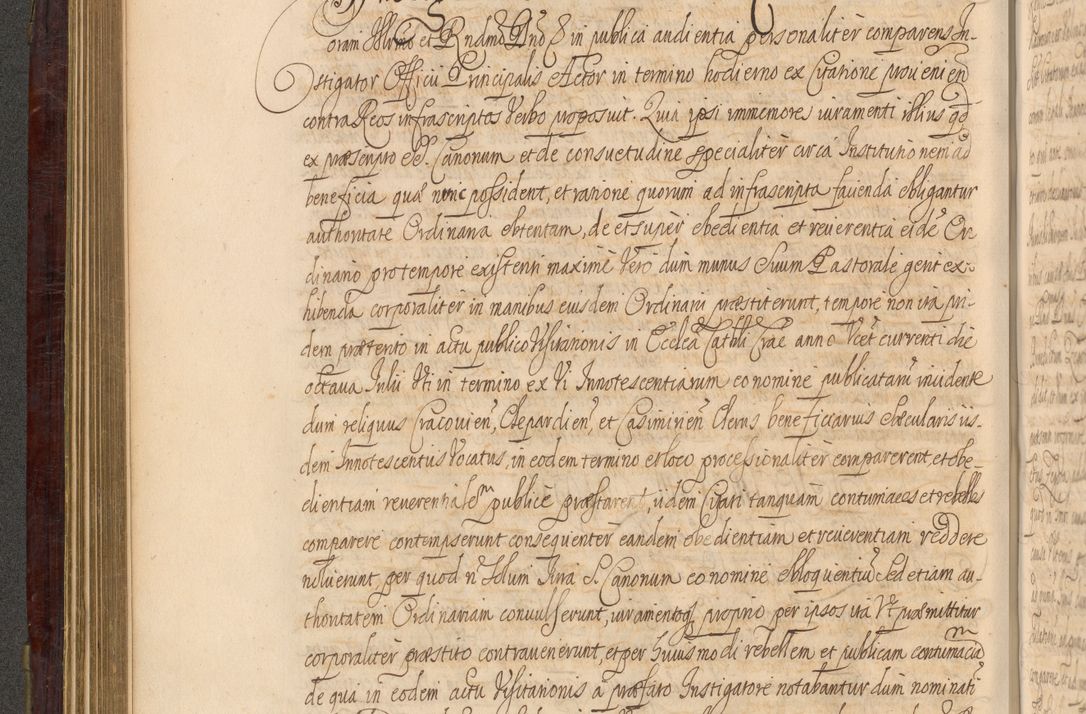 oram Illrmo et Rndmo Dno &c in publica audientia personaliter comparens In-
stigator Officii Principalis Actor in termino hodierno ex Citatione provenien
contra Reos infrascriptos Verbo proposuit. Quia ipsi immemores iuramenti illius qd
ex præscripto SS. Canonum et de consuetudine specialiter circa Institutionem ad
beneficia quæ nunc possident, et ratione quorum ad infrascripta facienda obligantur
authoritate Ordinaria obtentam, de et super obedientia et reverentia eidē Or
dinario pro tempore existenti maxime Vero dum munus Suum Pastorale gerit ex-
hibenda corporaliter in manibus eiusdem Ordinarij præstiterunt, tempore non ita pri-
dem prætento in actu publico Visitationis in Ecclea Cathli Crac anno Vcet currenti die
octava Julii Uti in termino ex Vi Innotescentiarum eo nomine publicatarū incidente
dum reliquus Cracovien, Clepardien, et Casimirien Clerus beneficiarius Sæcularis iis-
dem Innotescentiis Vocatus, in eodem termino et loco processionaliter comparerent, et obe-
dientiam reverentialem publice præstarent, iidem Citati tanquam contumaces et rebelles
comparere contempserunt consequenter eandem obedientiam et reverentiam reddere
noluerunt, per quod n Solum Jura S. Canonum eo nomine obloquentiū Sed etiam au-
thoritatem Ordinariam convulserunt, iuramentoq proprio per ipsos ita Ut præmittitur
corporaliter præstito contravenerunt, et per huiusmodi rebellem et publicam contumaciā
de qua in eodem actu Visitationis a præfato Instigatore notabantur dum nominati